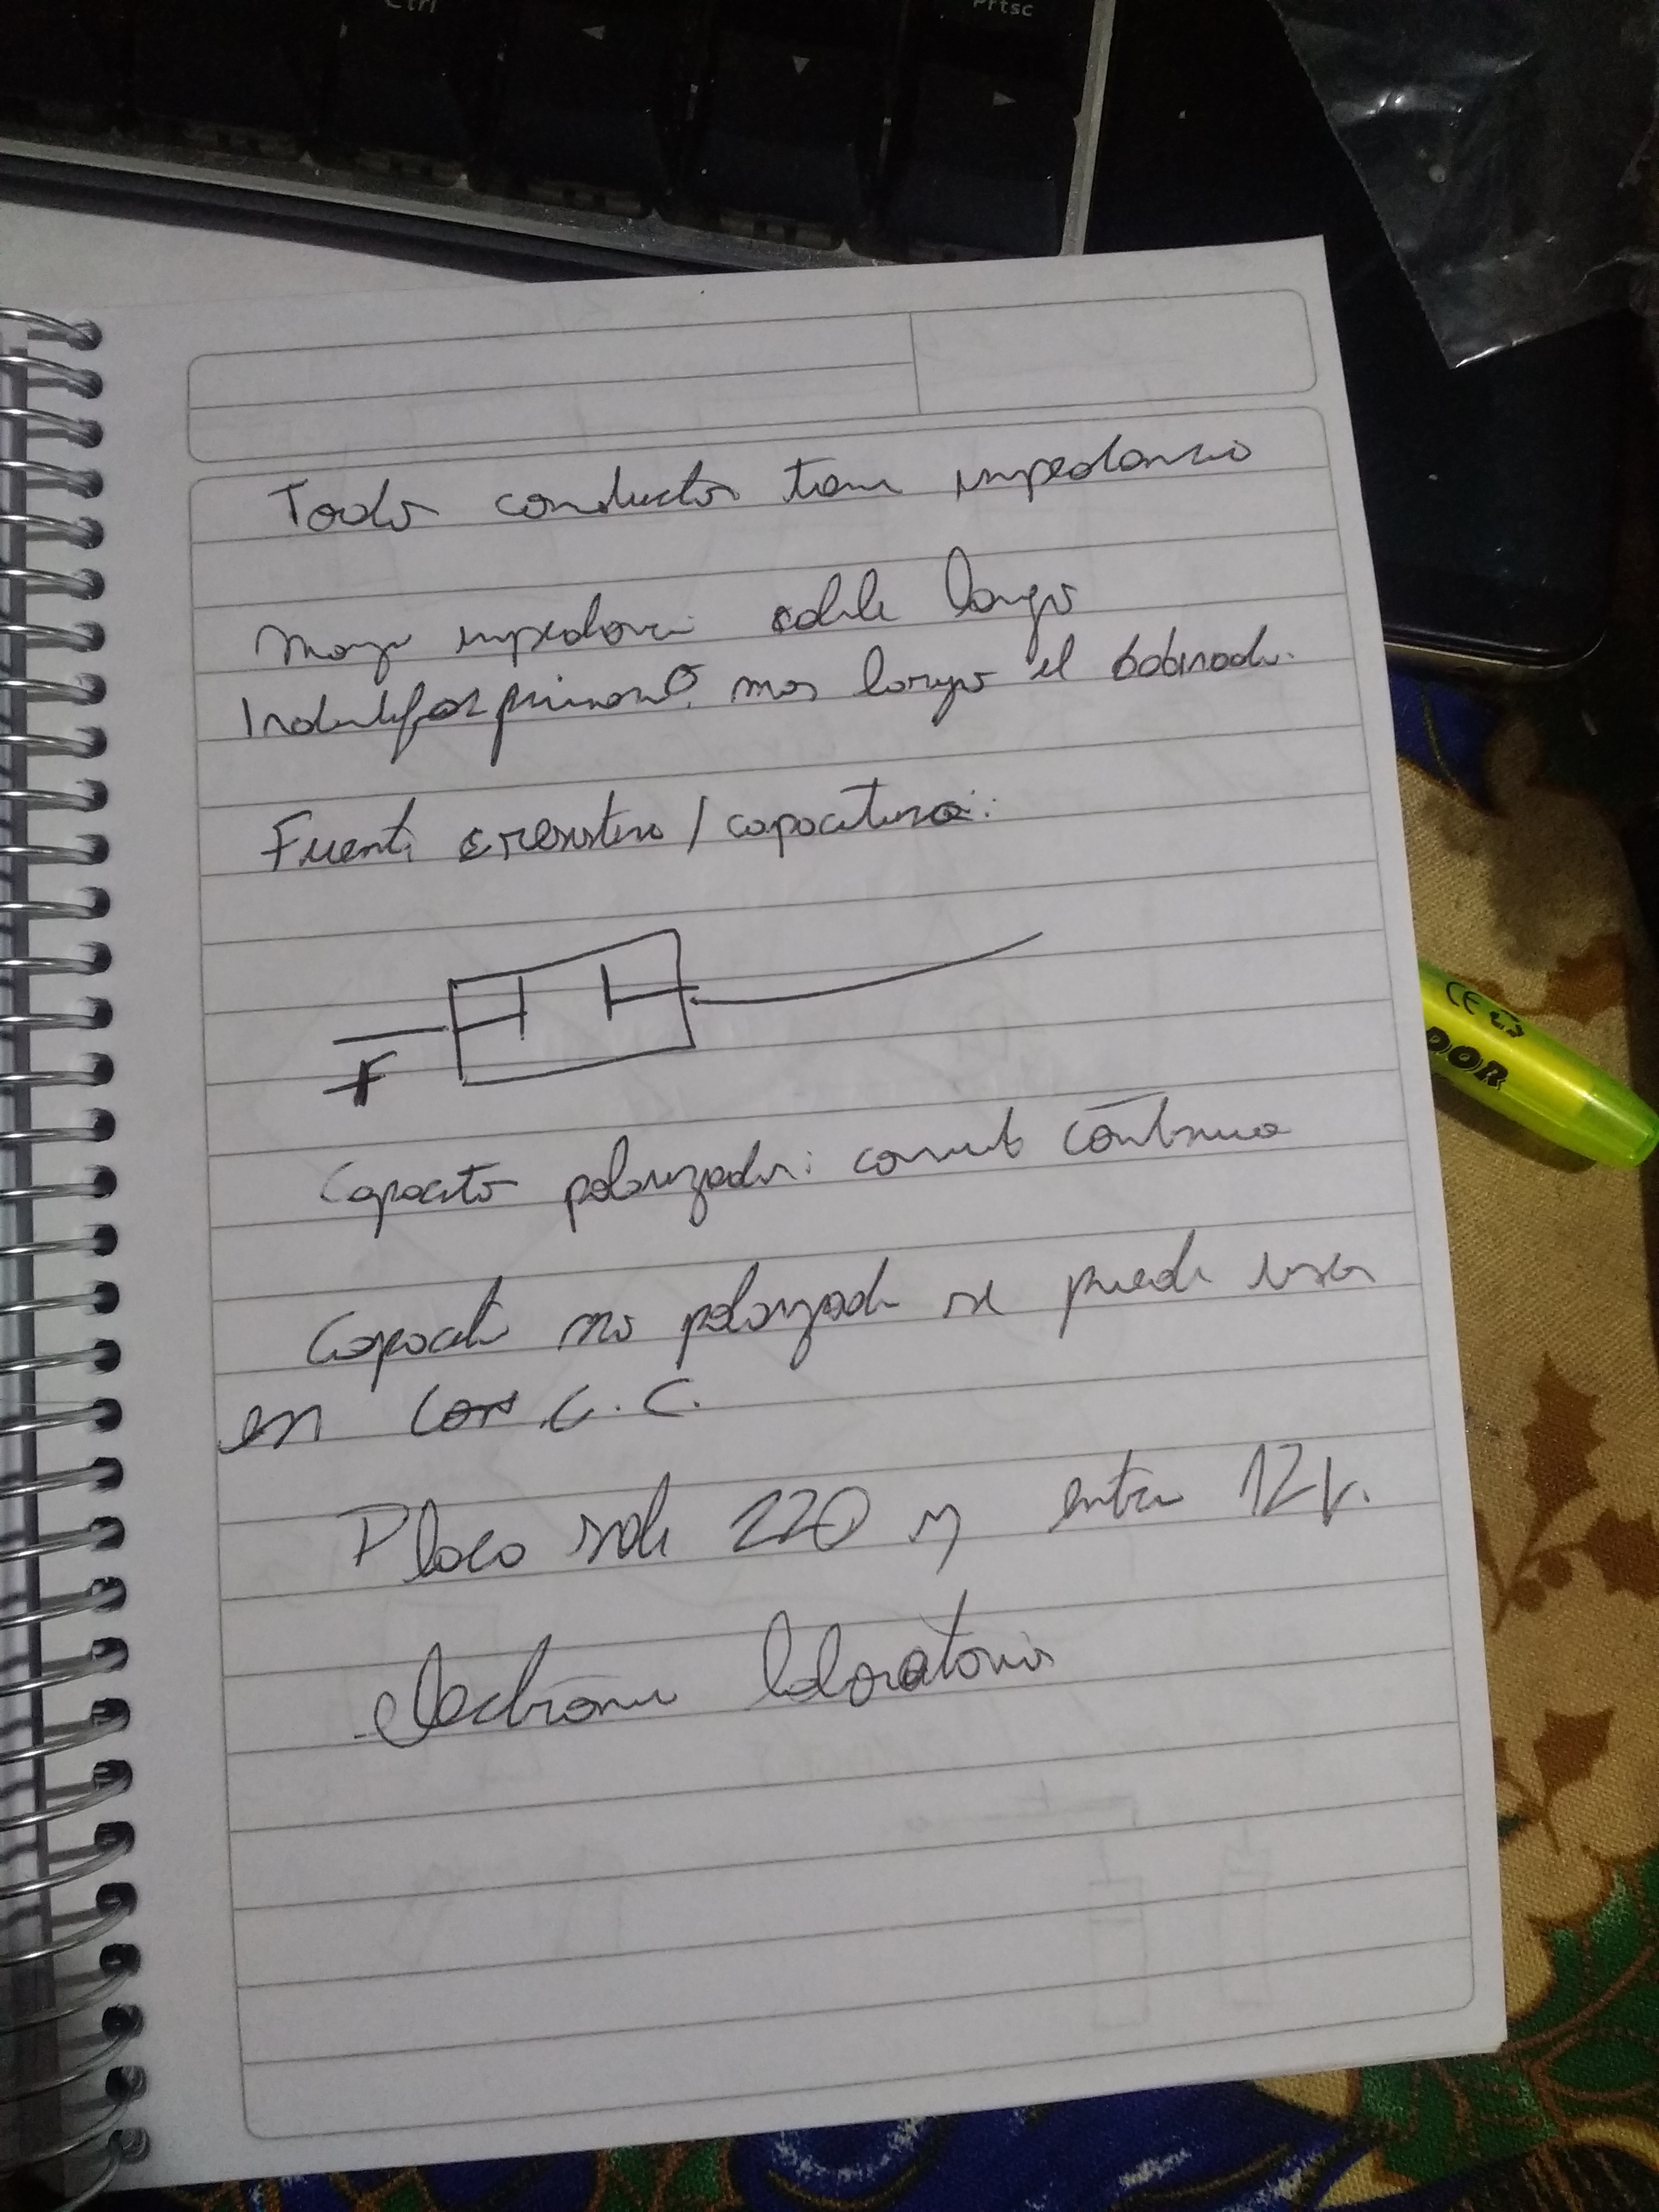 Ctrl
Prtsc
Todo conductor tiene impedancia
Mayor impedancia cable largo
mas largo el bobinado.
Fuente resistiva / capacitiva:
F
CE
DOR
Capacitor polarizado: corriente continua
Capacitor no polarizado se puede usar
en C.C.
Placa sale 220 y entra 12V.
electronica laboratorio